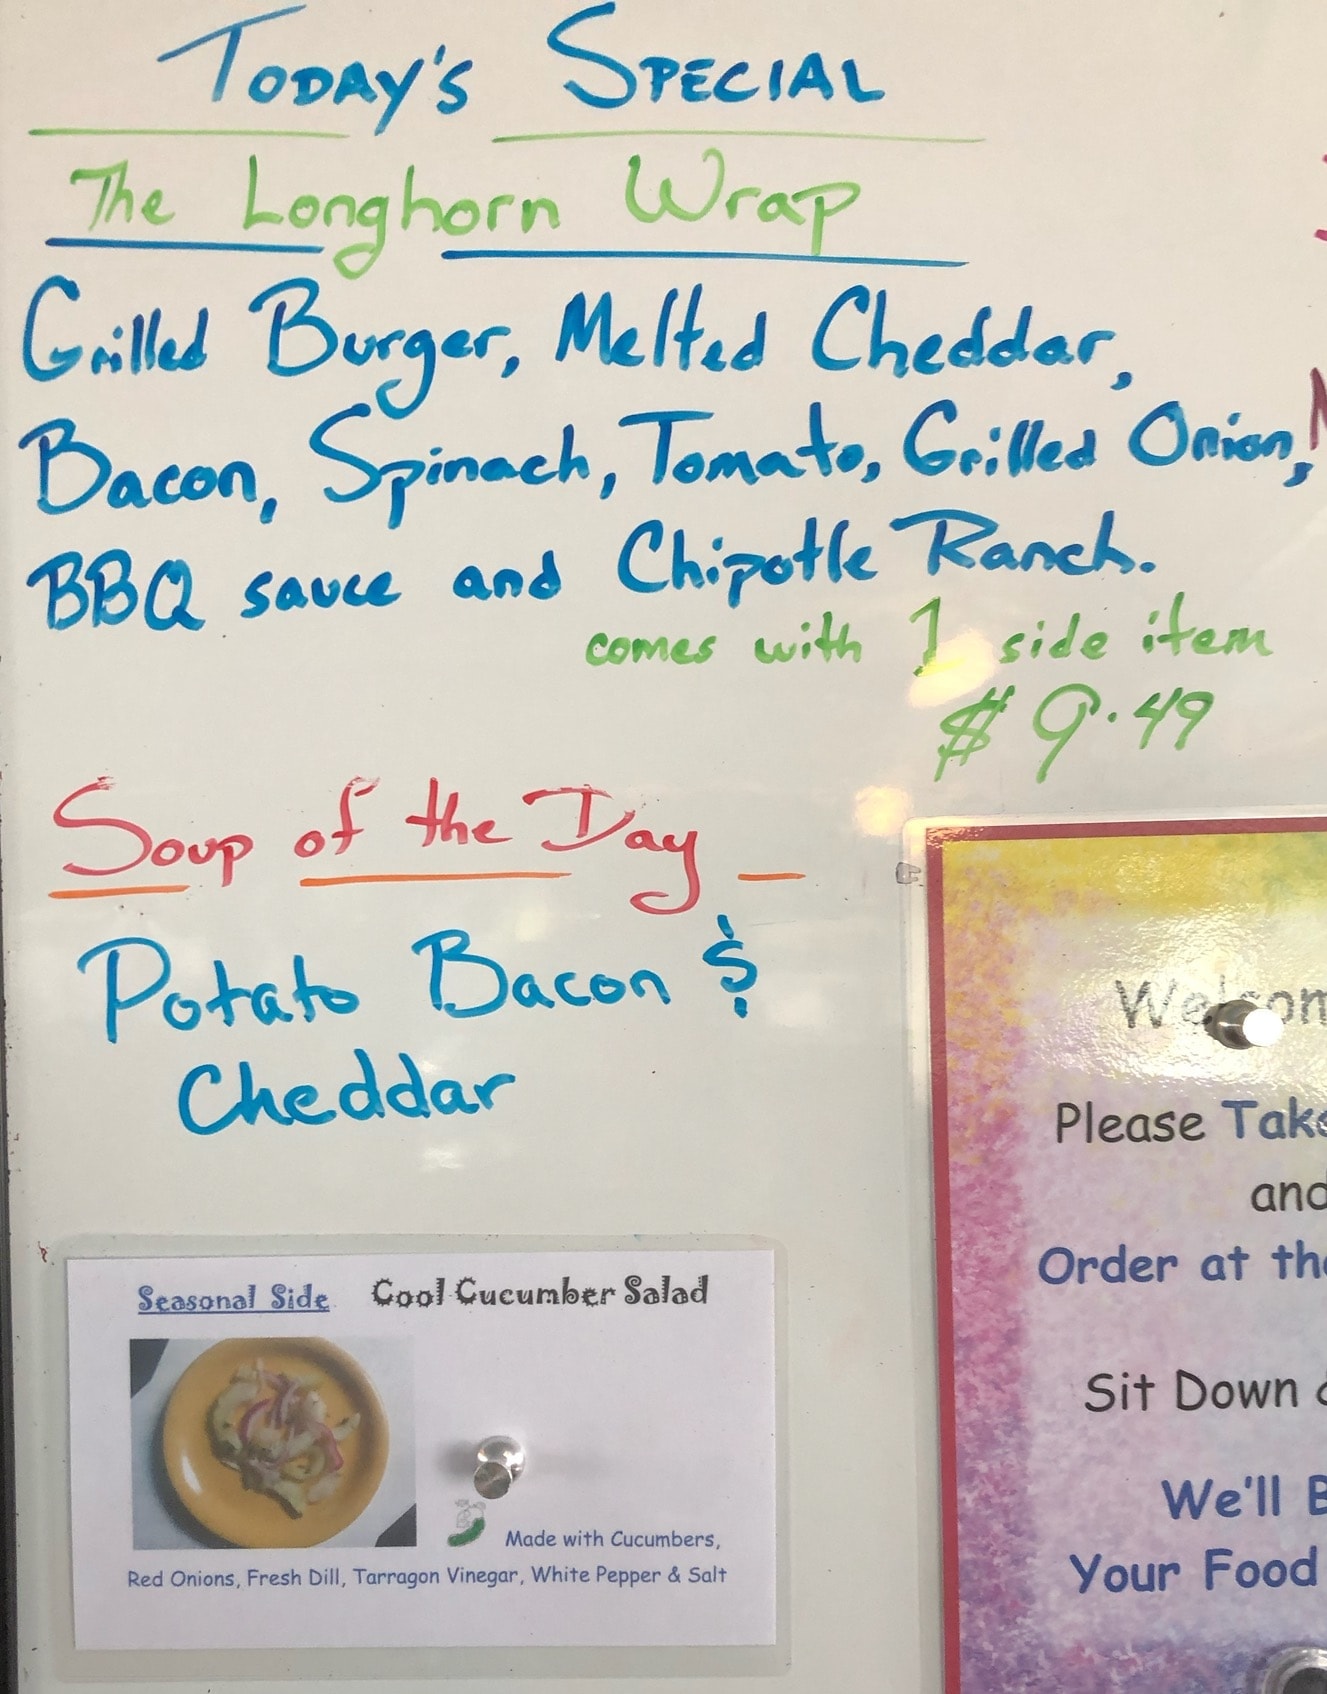 TODAY'S SPECIAL
The Longhorn Wrap
Grilled Burger, Melted Cheddar,
Bacon, Spinach, Tomato, Grilled Onion,
BBQ sauce and Chipotle Ranch.
comes with 1 side item
$ 9.49
Soup of the Day
Potato Bacon &
Cheddar
Seasonal Side Cool Cucumber Salad
Made with Cucumbers,
Red Onions, Fresh Dill, Tarragon Vinegar, White Pepper & Salt
Please
and
Order at
Sit Down
We'll
Your Food